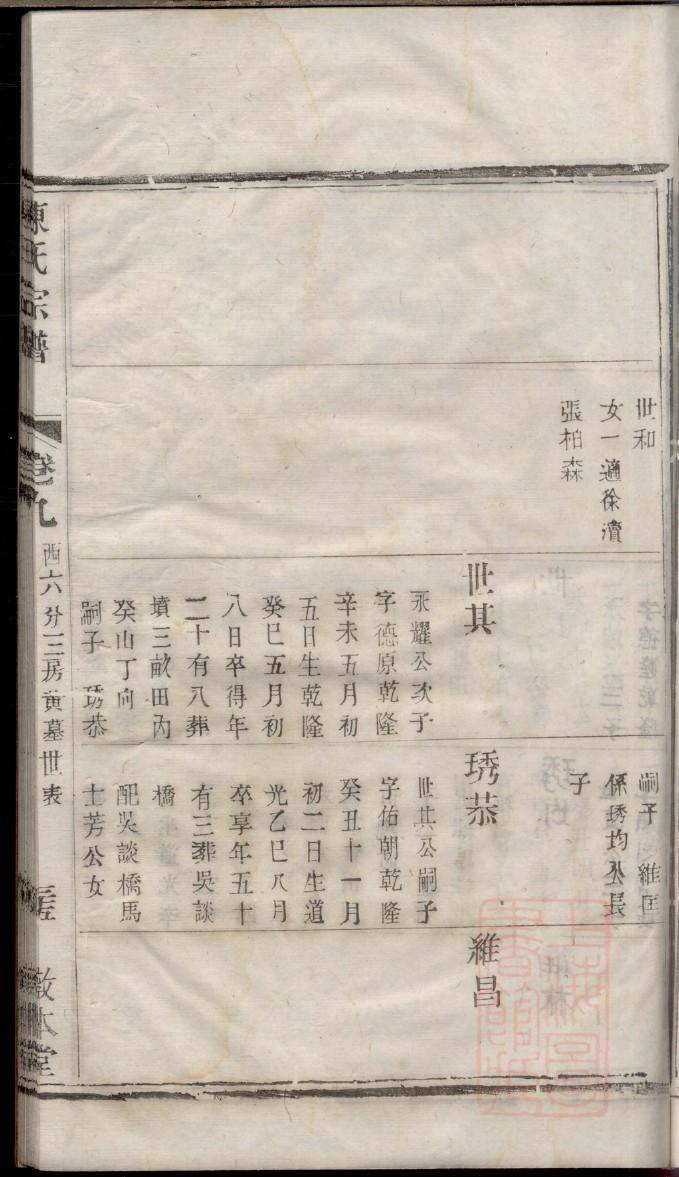 世和
女一適徐瀆
張柏森
嗣子 維匡
係琇均公長
子
世其
永耀公次子
字德原乾隆
辛未五月初
五日生乾隆
癸巳五月初
八日卒得年
二十有八葬
墳三畝田內
癸山丁向
嗣子 琇恭
琇恭
世其公嗣子
字佑朝乾隆
癸丑十一月
初二日生道
光乙巳八月
卒享年五十
有三葬吳談
橋
配吳談橋馬
士芳公女
維昌
陳氏宗譜
卷九
西六分三房黃墓世表
敦本堂